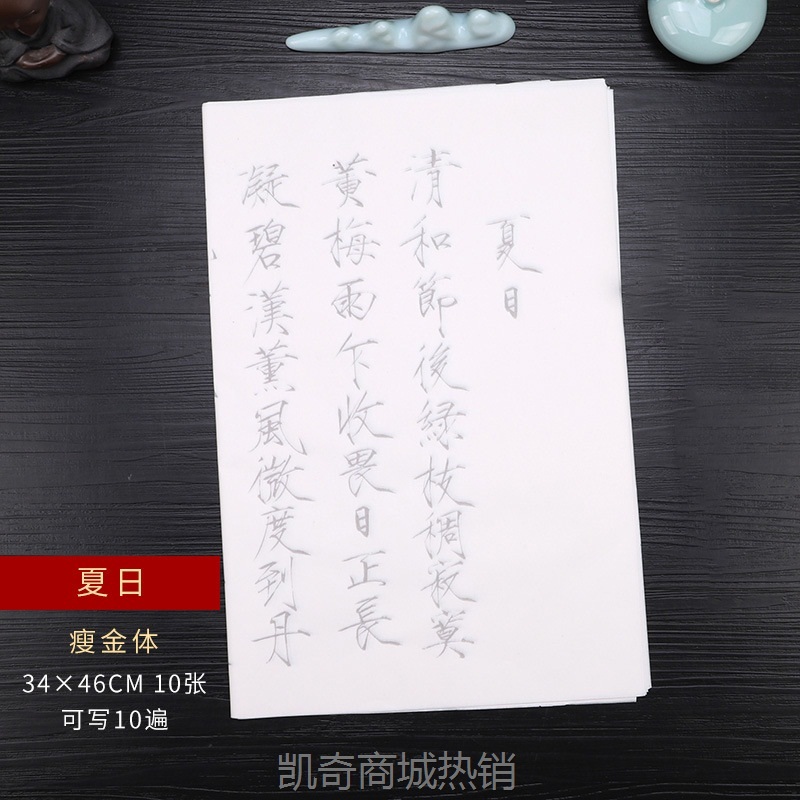 夏日
清和節後綠枝稠寂莫
黄梅雨乍收畏日正長
凝碧漢薰風微度到丹
夏日
瘦金体
34×46CM 10张
可写10遍
凯奇商城热销